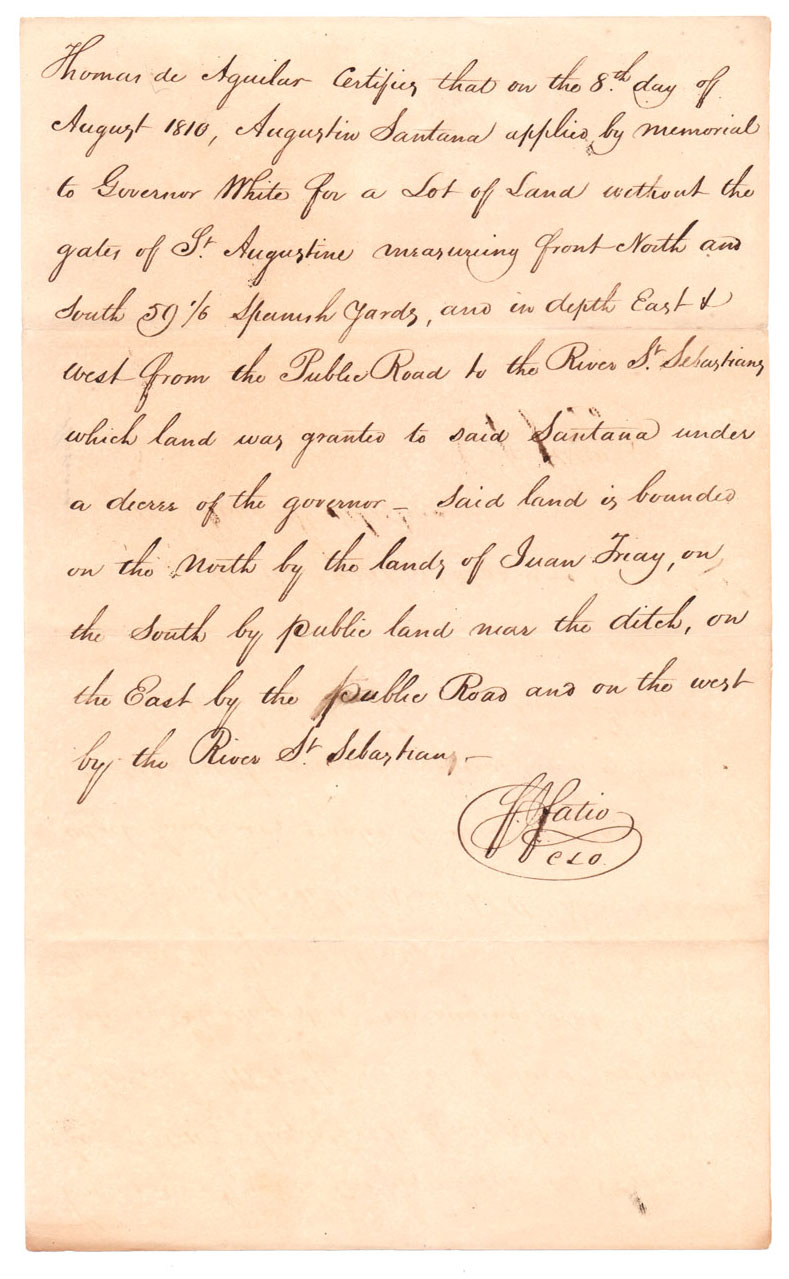 Thomas de Aguilar Certifies that on the 8.th day of
August 1810, Augustin Santana applied by memorial
to Governor White for a Lot of Land without the
gates of St. Augustine measureing front North and
South 59 1/6 Spanish Yards, and in depth East &
west from the Public Road to the River St. Sebastians
which land was granted to said Santana under
a decree of the governor - Said land is bounded
on the North by the lands of Juan Triay, on
the South by public land near the ditch, on
the East by the public Road and on the west
by the River St. Sebastians -
F. J. Fatio
C L O.